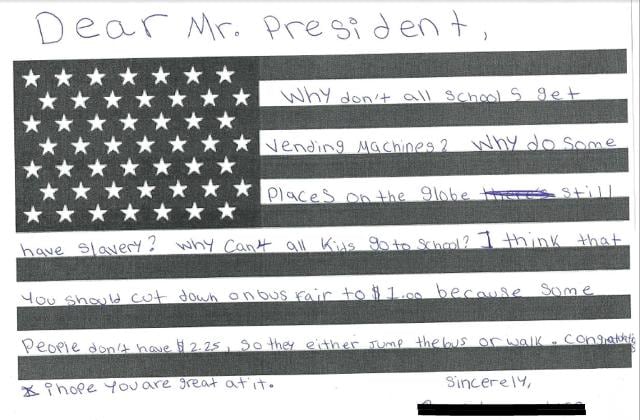 Dear Mr. President,
Why don't all schools get
vending Machines? Why do some
Places on the globe there's still
have slavery? Why Can't all Kids go to school? I think that
You should cut down on bus fair to $1.00 because some
People don't have $2.25, so they either Jump the bus or walk. Congratulations
I hope you are great at it.
Sincerely,